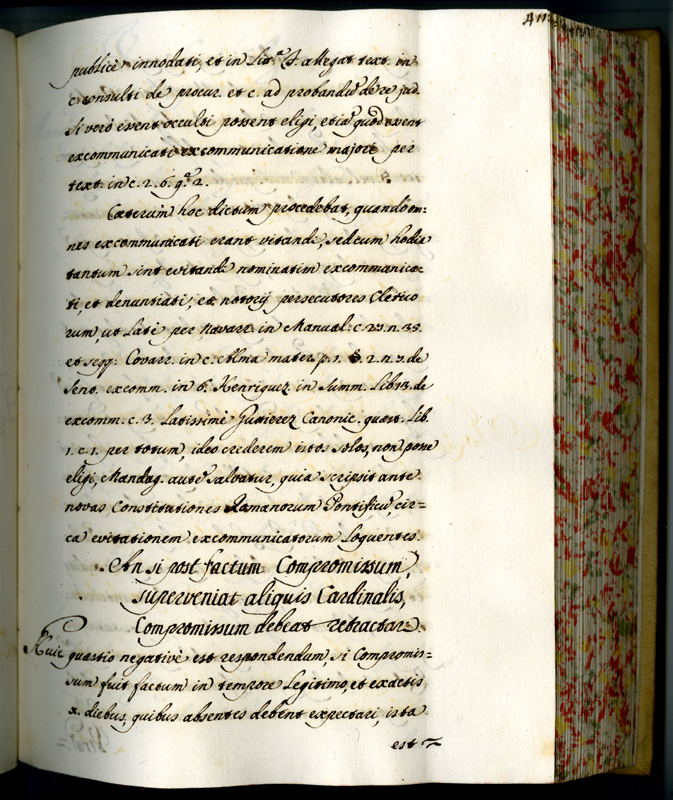 publicè innodati, et in Lit.ª S. allegat text. in
c. consulti de procur. et c. ad probandũ de re jud.
Si verò essent occulti possent eligi, etiã quod exent
excommunicati excommunicatione majore per
text. in c. 2. 6. q.ª 2.
Cæterum hoc dictum procedebat, quando om=
nes excommunicati erant vitandi, sed cum hodie
tantum sint evitandi nominatim excommunica=
ti, et denuntiati, et notorij persecutores Clerico
rum, ut Latè per Navarr. in Manual. c. 27. n. 35.
et seqq. Covarr. in c. Alma mater p. 1. §. 2. n. 7. de
Sent. excomm. in 6. Henriquez in Summ. Lib. 13. de
excomm. c. 3. Latissimè Gutierez Canonic. quæst. Lib.
1. c. 1. per totum, ideo crederem istos solos, non posse
eligi, Mandag. autẽ salvatur, quia scripsit ante
novas Constitutiones Romanorum Pontificũ, cir=
ca evitationem excommunicatorum Loquentes.
An si post factum Compromissum,
superveniat aliquis Cardinalis,
Compromissum debeat retractari.
Huic quæstio negativè est respondendum, si Compromis=
sum fuit factum in tempore Legitimo, et exactis
x. diebus, quibus absentes debent expectari, ista
est